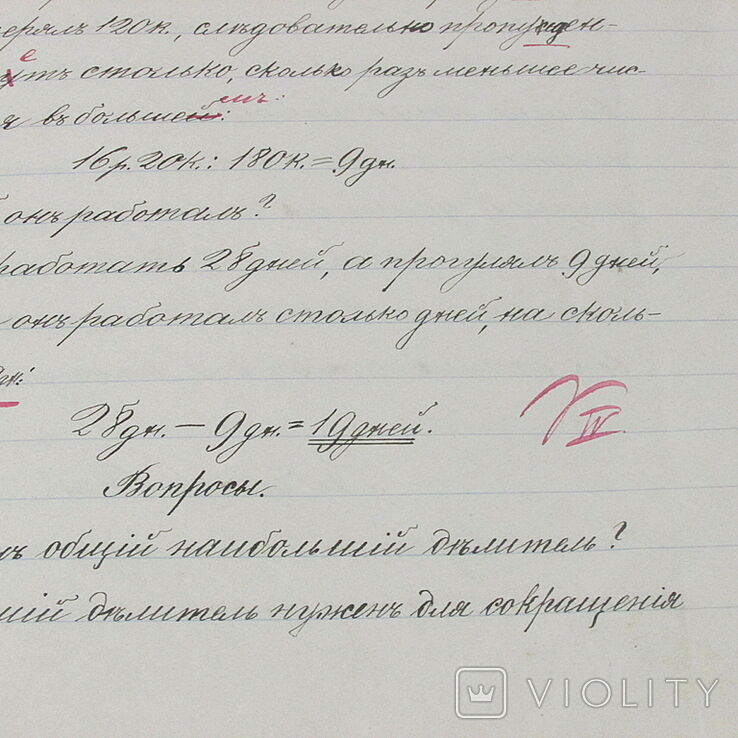 терялъ 120 к., слѣдовательно пропущен-
утъ столько, сколько разъ меньшее чис-
я въ большемъ:
16 р. 20 к. : 180 к. = 9 дн.
онъ работалъ?
работать 28 дней, а прогулялъ 9 дней,
онъ работалъ столько дней, на сколь-
28 дн. — 9 дн. = 19 дней.
IV
Вопросы.
лъ общій наибольшій дѣлитель?
шій дѣлитель нуженъ для сокращенія
VIOLITY